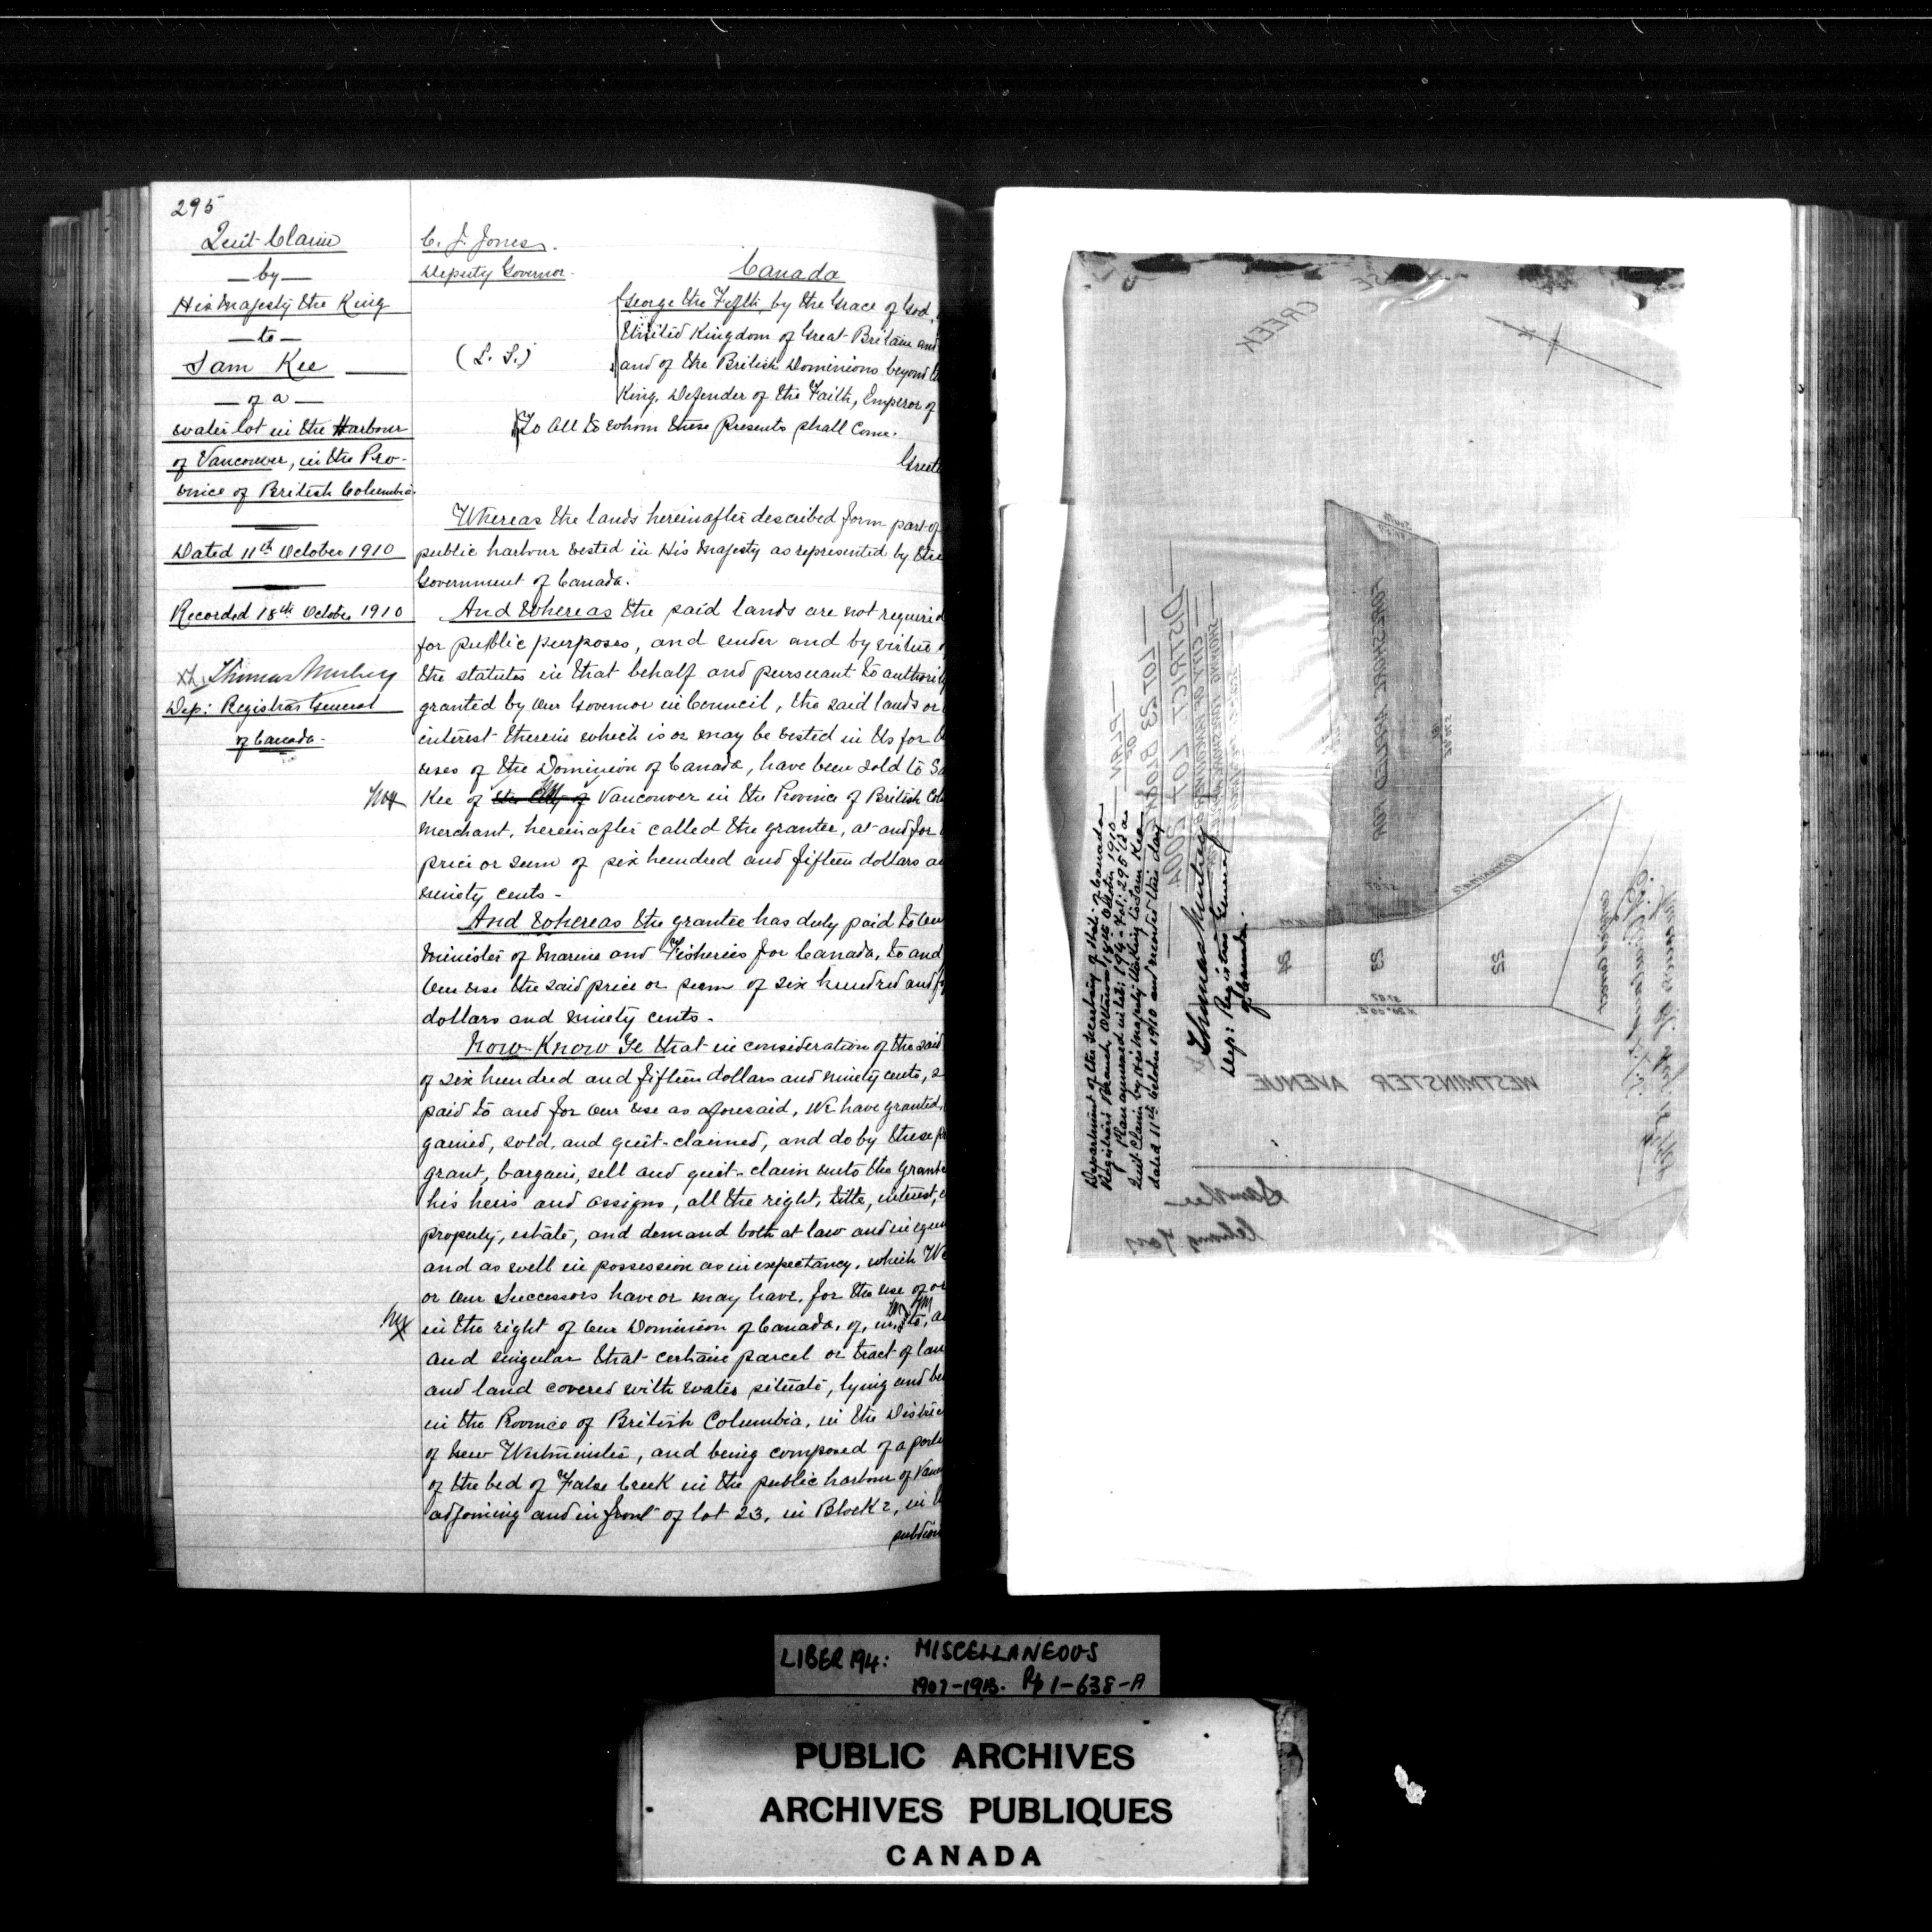 295
Quit Claim
— by —
His Majesty the King
— to —
Sam Kee
— of a —
water lot in the Harbour
of Vancouver, in the Pro-
vince of British Columbia.
Dated 11th October 1910
Recorded 18th October 1910
Thomas Mulvey
Dep: Registrar General
of Canada.
C. J. Jones.
Deputy Governor.
Canada
(L. S.)
George the Fifth, by the Grace of God,
United Kingdom of Great Britain and
and of the British Dominions beyond
King, Defender of the Faith, Emperor of
To all to whom these Presents shall Come.
Greeti
Whereas the lands hereinafter described form part of
public harbour vested in His Majesty as represented by the
Government of Canada.
And Whereas the said lands are not required
for public purposes, and under and by virtue
the statutes in that behalf and pursuant to authority
granted by our Governor in Council, the said lands or
interest therein which is or may be vested in Us for
uses of the Dominion of Canada, have been sold to Sa
Kee of the City of Vancouver in the Province of British Col
Merchant, hereinafter called the grantee, at and for
price or sum of six hundred and fifteen dollars an
ninety cents -
And Whereas the grantee has duly paid to Our
Minister of Marine and Fisheries for Canada, to and
Our use the said price or sum of six hundred and fi
dollars and ninety cents -
Now Know Ye that in consideration of the said
of six hundred and fifteen dollars and ninety cents, s
paid to and for Our use as aforesaid, We have granted,
gained, sold, and quit-claimed, and do by these pr
grant, bargain, sell and quit-claim unto the Grante
his heirs and assigns, all the right, title, interest,
property, estate, and demand both at law and in equi
and as well in possession as in expectancy, which We
or Our Successors have or may have, for the use of or
in the right of Our Dominion of Canada, of, in, to, a
and singular that certain parcel or tract of lan
and land covered with water situate, lying and be
in the Province of British Columbia, in the Distric
of New Westminster, and being composed of a porti
of the bed of False Creek in the public harbour of Vanc
adjoining and in front of lot 23, in Block 2, in
subdivi
CREEK
PLAN
OF
LOT 23 BLOCK
DISTRICT LOT 200A
CITY OF VANCOUVER
FORESHORE APPLIED FOR
24
23
22
WESTMINSTER AVENUE
Department of the Secretary of State of Canada
Registrar's Branch, Ottawa, 18th October 1910
Plan annexed in Lib: 194 - Fol: 295 to a
Quit Claim by His Majesty the King to Sam Kee
dated 11th October 1910 and recorded this day
Thomas Mulvey
Dep: Registrar General
of Canada.
Sam Kee
LIBER 194: MISCELLANEOUS
1907-1913. Pp 1-638-A
PUBLIC ARCHIVES
ARCHIVES PUBLIQUES
CANADA